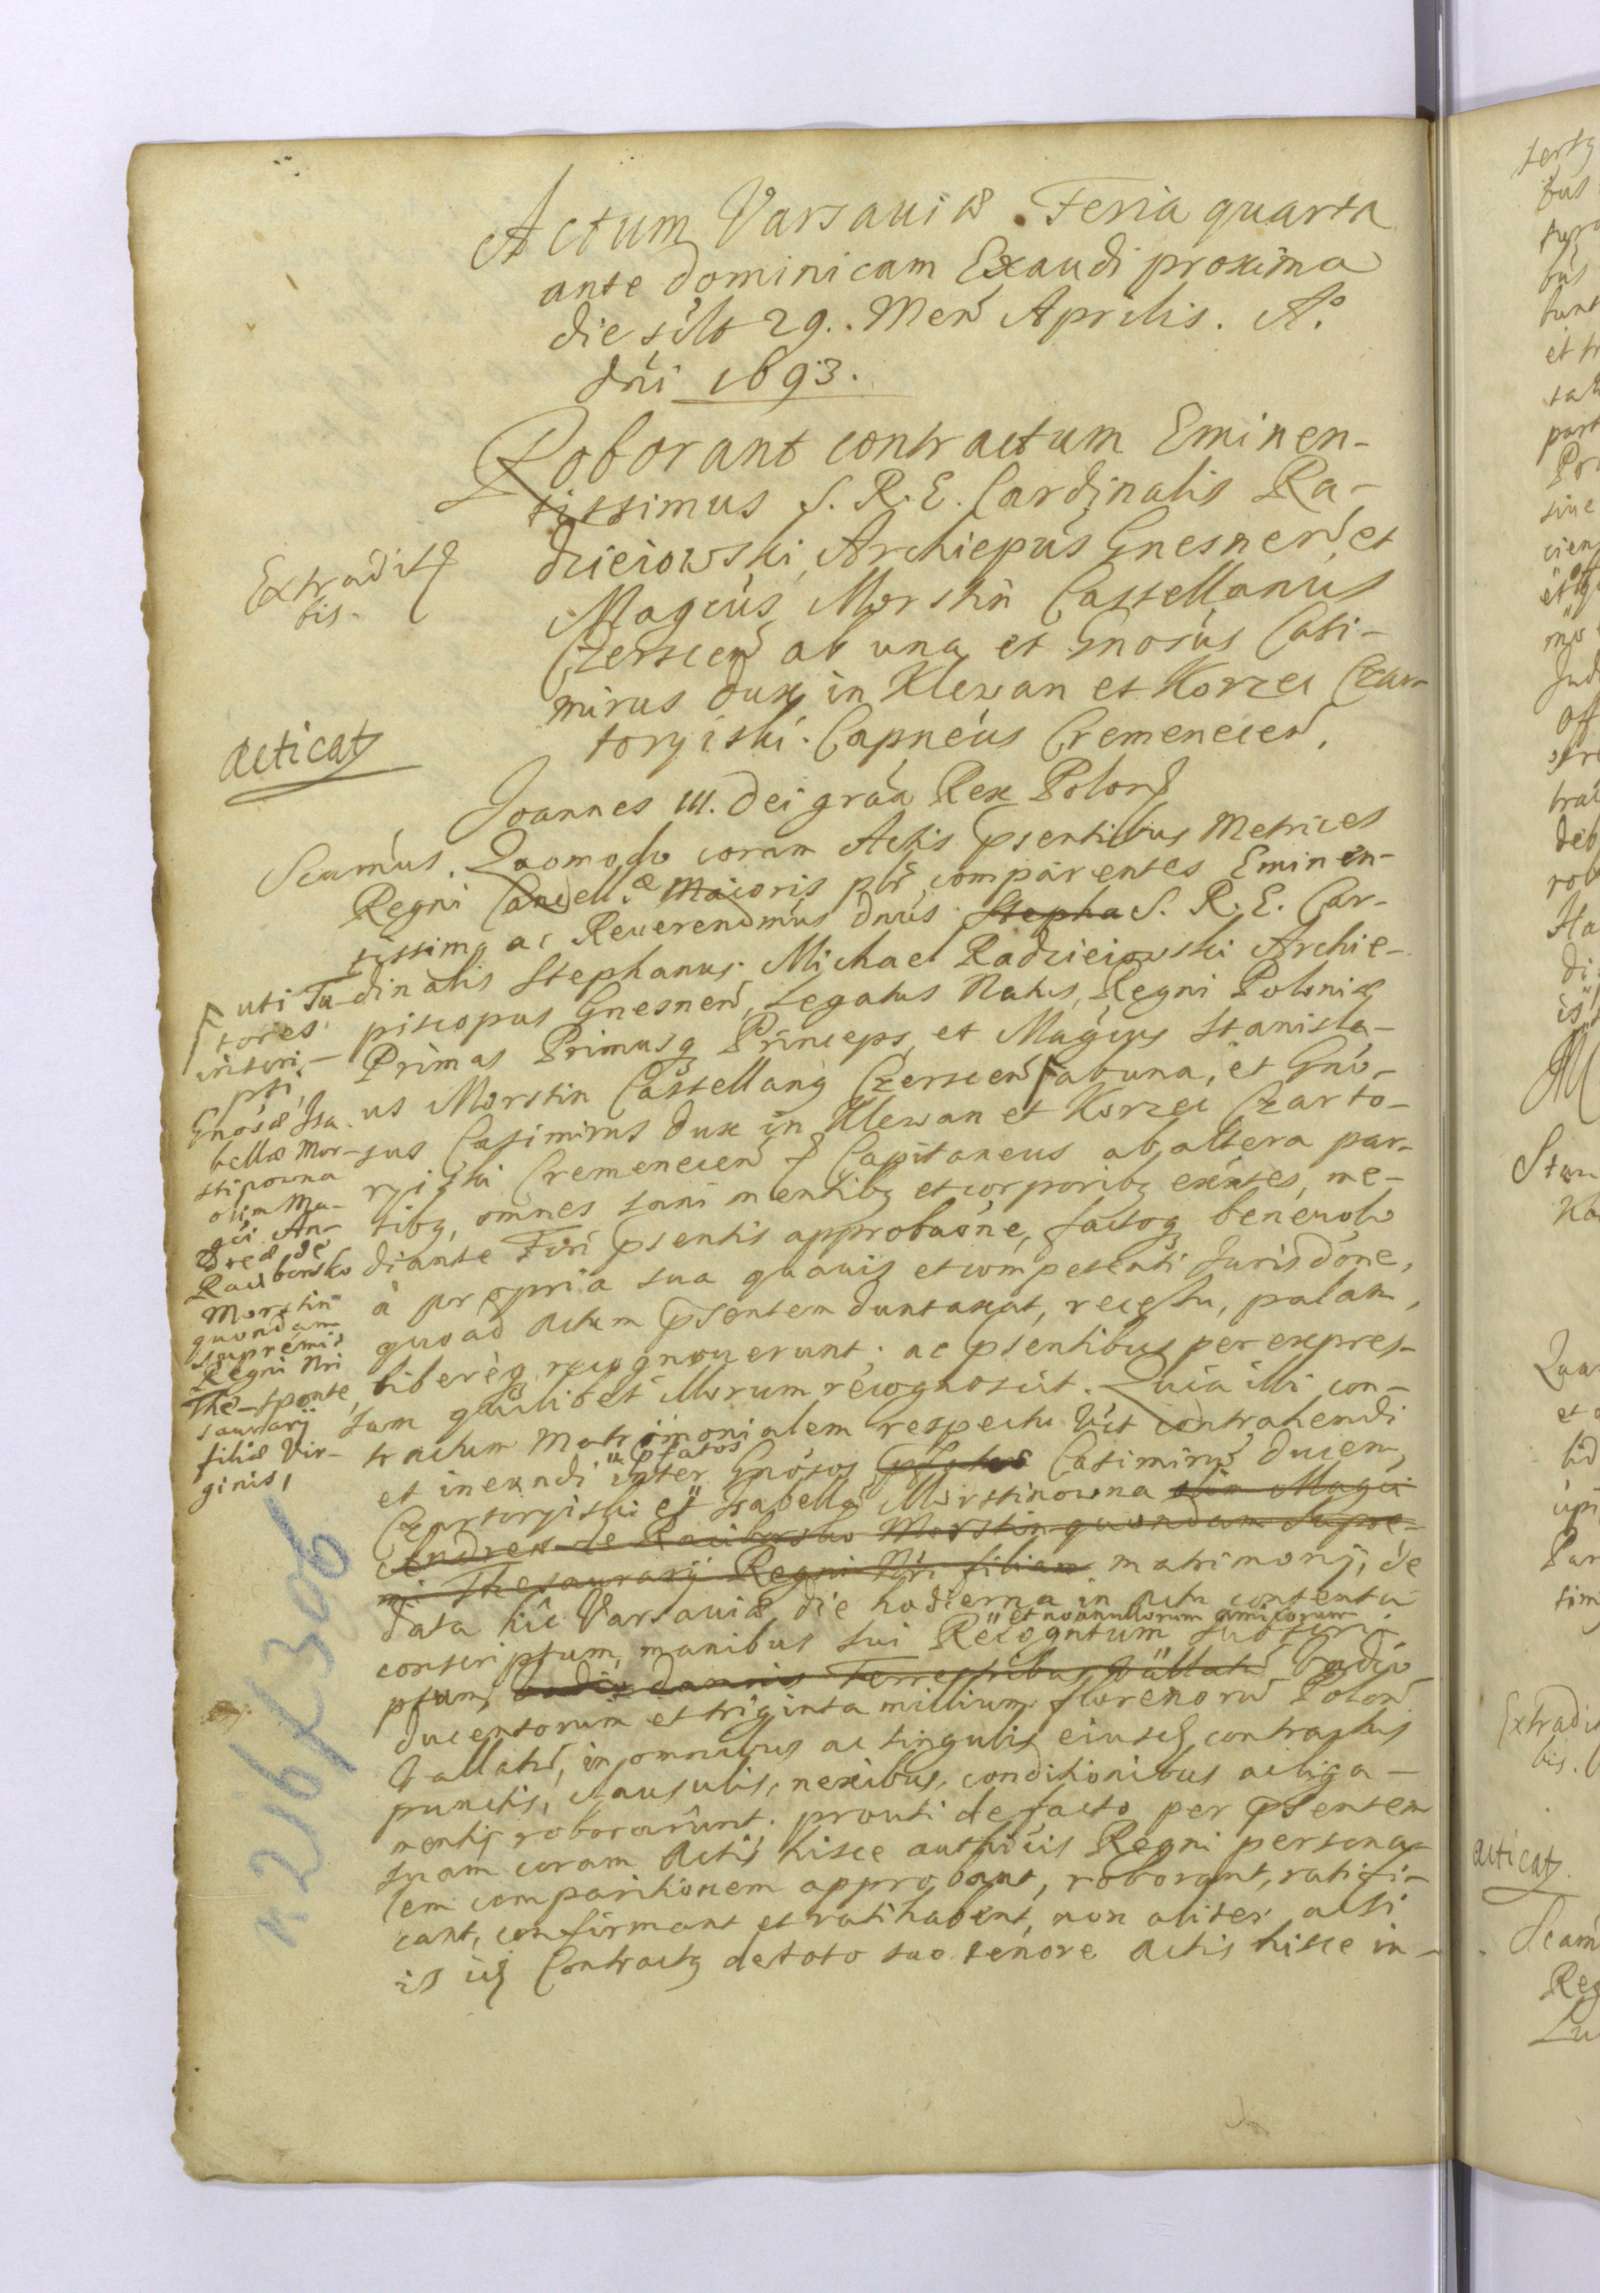 Actum Varsaviæ Feria quarta
ante Dominicam Exaudi proxima
die silt 29. Men Aprilis. Aº
dni 1693.
Roborant contractum Eminen-
tissimus S. R. E. Cardinalis Ra-
dzieiowski, Archiepus Gnesnen, et
Magcus Morstin Castellanus
Czerscen ab una et Gnosus Casi-
mirus Dux in Klewan et Korzec Czar-
toryiski. Capneus Cremenecen.
Extradit
bis.
acticat
Joannes III. Dei gráa Rex Polon
Scamus. Quomodo coram Actis psentibus Metrices
Regni Cancell. Maioris plr comparentes Eminen-
tissimq ac Reverendmus dnus Stepha S. R. E. Car-
dinalis Stephanus Michael Radzieiowski Archie-
piscopus Gnesnen, Legatus Natus, Regni Poloniæ
Primas Primusq Princeps, et Magcus Stanisla-
us Morstin Castellanq Czerscen ab una, et Gno-
sus Casimirus Dux in Klewan et Korzec Czarto-
ryiski Cremenecen Capitaneus ab altera par-
tibq, omnes sani mentibq et corporibq exntes, me-
diante Fori psentis approbaóne, factoq benevole
à propria sua quavis et competenti Jurisdóne,
quoad Actum psentem duntaxat, recessu, palam,
libereq recognoverunt. ac psentibus per expres-
sum quilibet illorum recognoscit. Quia illi con-
tractum Matrimonialem respectu Vict contrahendi
et ineundi inter Gnosos pfatos Casimirum Ducem
pfatos
Czartoryiski et Isabella Morstinowna olim Magci
Andreæ de Raciborsko Morstin quondam Supre-
mi Thesaurarij Regni Nri filiam matrimonij, de
data hic Varsaviæ die hodierna in Actu contentu
et nonnullorum amicorum
conscriptum, manibus sui Recogntium subscri-
ptum, vadio damnis Terrestribus Vallatu Vadio
ducentorum et triginta millium florenoru Polon
Vallatu, in omnibus ac singulis eiusd contractus
punctis, clausulis, nexibus, conditionibus ac liga-
mentis roborarunt. prouti de facto per psentem
suam coram Actis hisce authcis Regni persona-
lem comparitionem approbant, roborant, ratifi-
cant, confirmant et ratihabent, non aliter acsi
is idem Contractq de toto suo tenore Actis hisce in-
uti Tu-
tores
inscri-
pti,
Gnosæ Isa-
bellæ Mor-
stinowna
olim Ma-
gci An-
dreæ de
Raciborsko
Morstin
quondam
supremi
Regni Nri
The-
saurarij
filiæ Vir-
ginis,
sponte,